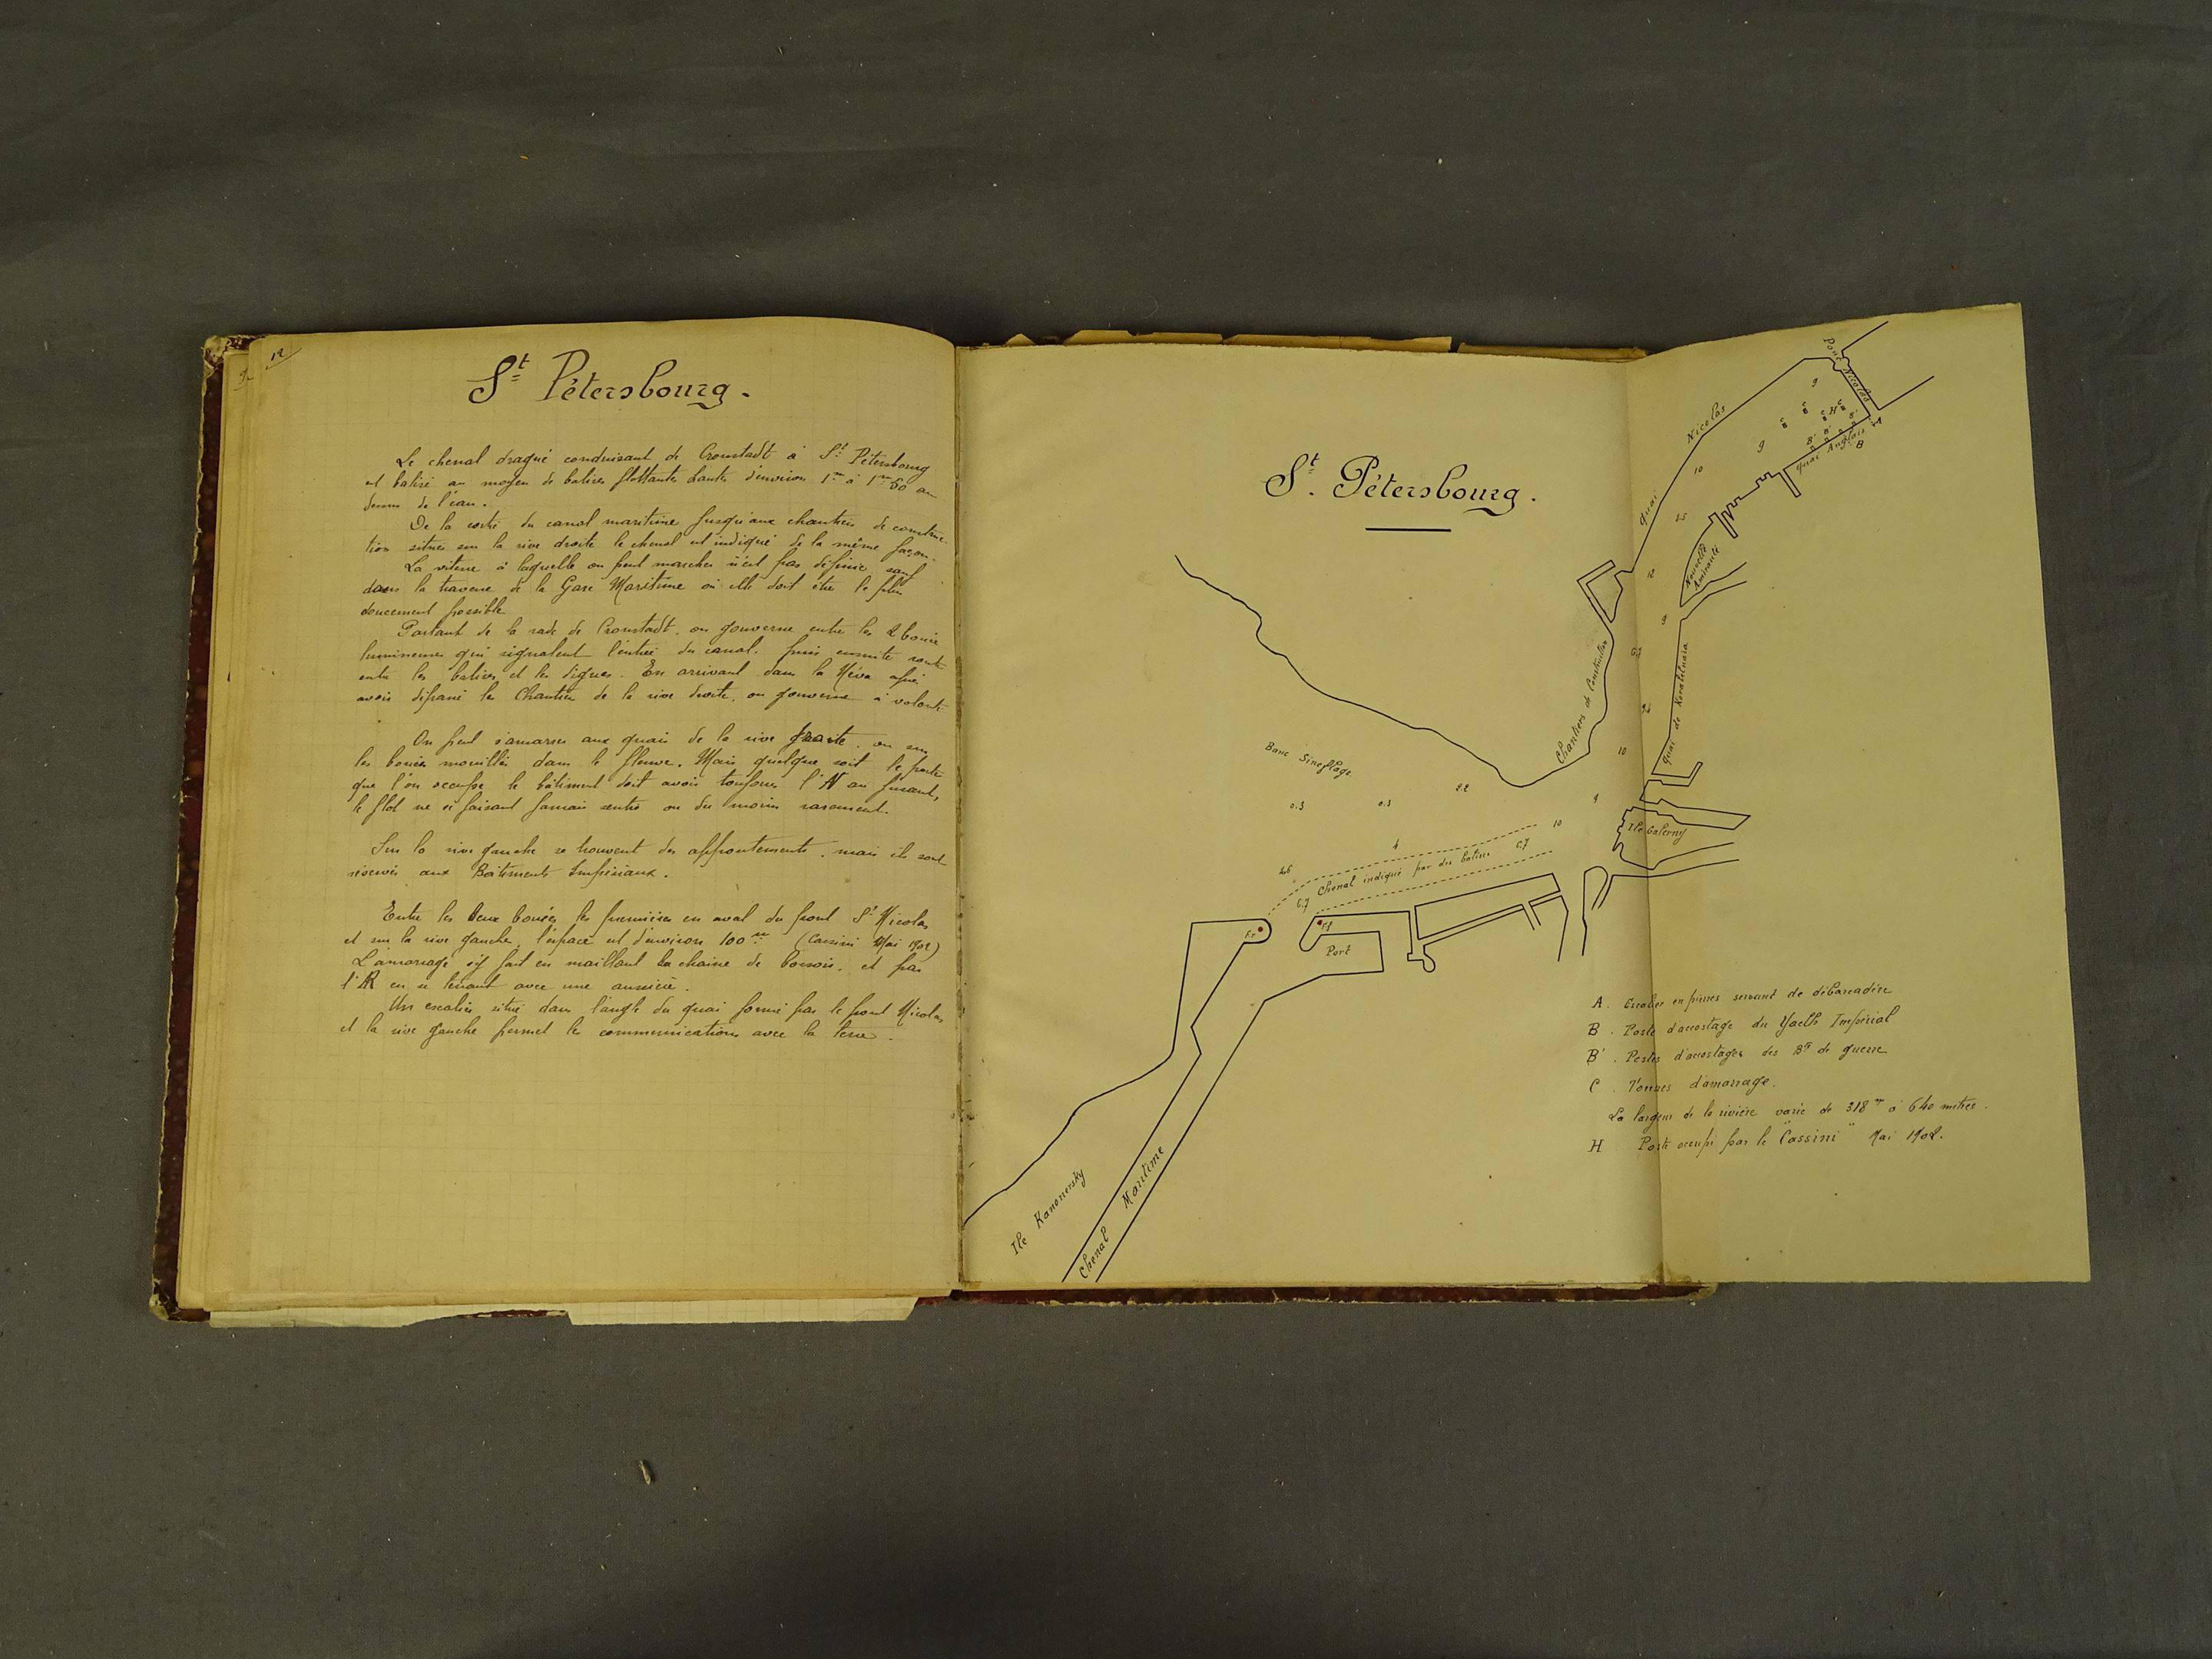 12
St Pétersbourg.
Le chenal dragué conduisant de Cronstadt à St Pétersbourg
est balisé au moyen de balises flottantes hautes d'environ 1m à 1m50 au
dessus de l'eau.
De la sortie du canal maritime jusqu'aux chantiers de construc-
tion situés sur la rive droite le chenal est indiqué de la même façon.
La vitesse à laquelle on peut marcher n'est pas définie sauf
dans la traversée de la Gare Maritime où elle doit être le plus
doucement possible
Partant de la rade de Cronstadt, on gouverne entre les 2 bouées
lumineuses qui signalent l'entrée du canal, puis ensuite
entre les balises et les digues. En arrivant dans la Néva après
avoir dépassé les Chantiers de la rive droite, on gouverne à volonté
On peut s'amarrer aux quais de la rive droite, ou sur
les bouées mouillées dans le fleuve. Mais quelque soit le poste
que l'on occupe le bâtiment doit avoir toujours l'AV au jusant,
le flot ne se faisant jamais sentir ou du moins rarement.
Sur la rive gauche se trouvent des appontements, mais ils sont
réservés aux Bâtiments Impériaux.
Entre les deux bouées les premières en aval du pont St Nicolas
et sur la rive gauche, l'espace est d'environ 100m (Cassini Mai 1902)
L'amarrage s'y fait en maillant la chaîne de bossoir, et par
l'AR en se tenant avec une aussière.
Un escalier situé dans l'angle du quai formé par le pont Nicolas
et la rive gauche permet les communications avec la terre.
St. Pétersbourg.
Pont Nicolas
Quai Nicolas
9
C
C
C H C
B' B' B'
A
B
Quai Anglais
9
10
Nouvelle Amirauté
9
Quai de
Chantiers de Construction
10
Banc
0.3
0.3
2.2
9
10
4
Ile Galerny
Chenal indiqué par des balises
6.7
6.7
F.r
F.f
Port
Ile Kanonersky
Chenal Maritime
A. Escalier en pierres servant de débarcadère
B. Poste d'accostage du Yacht Impérial
B'. Postes d'accostages des Bts de guerre
C. Tonnes d'amarrage.
La largeur de la rivière varie de 318m à 640 mètres.
H Poste occupé par le "Cassini" Mai 1902.